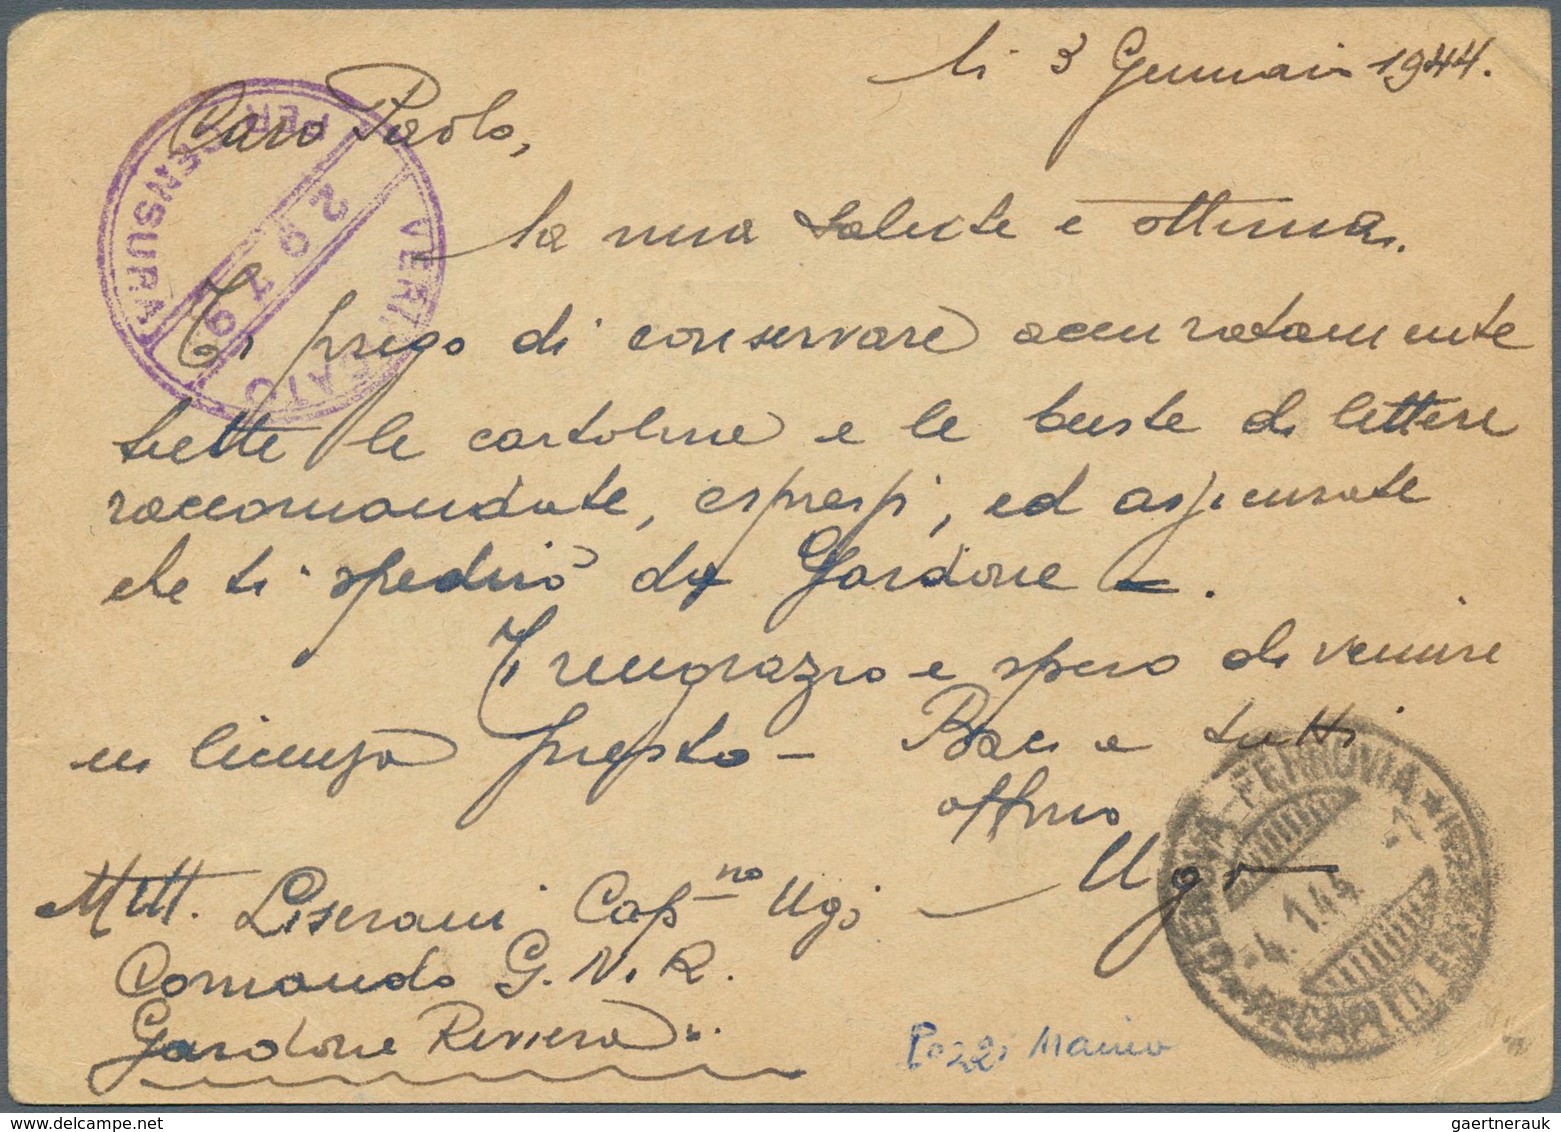 li 3 Gennaio 1944.
Caro Paolo,
la mia salute è ottima.
Ti prego di conservare accuratamente
tutte le cartoline e le buste di lettere
raccomandate, espressi, ed assicurate
che ti spedirò da Gardone.
Ti ringrazio e spero di venire
in licenza presto - Baci a tutti
aff.mo
Ugo
Mitt. Liserani Cap.no Ugo
Comando G.N.R.
Gardone Riviera
Pozzi Mario
VERIFICATO PER CENSURA
291 9
GENOVA-FERROVIA
-4.1.44
RECAPITO ESP
gaertnerauk